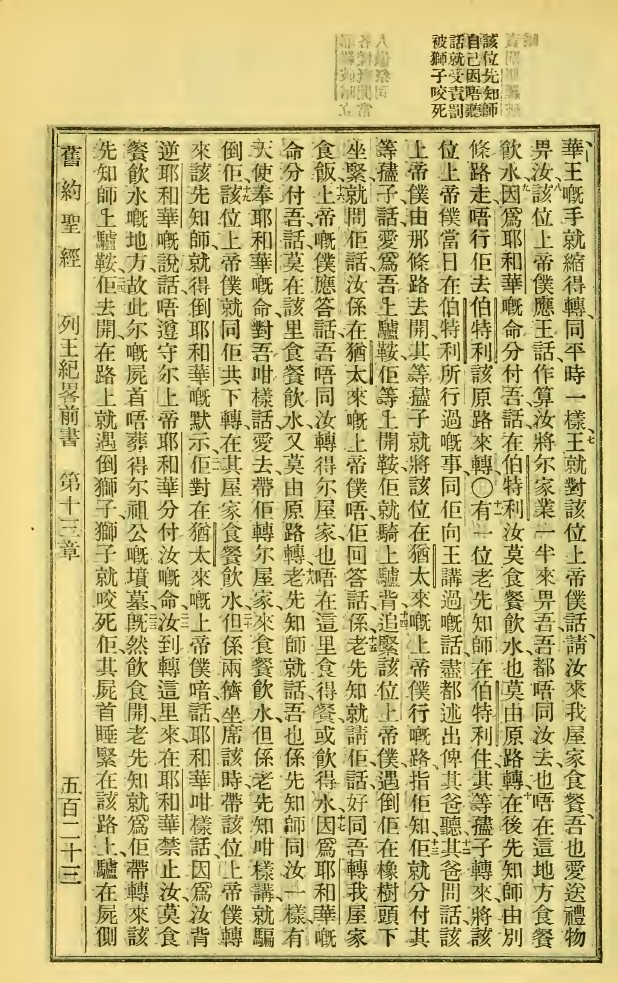 該位先知師
自己因唔聽
話就受責罰
被獅子咬死
華王嘅手就縮得轉同平時一樣王就對該位上帝僕話請汝來我屋家食餐吾也愛送禮物
畀汝該位上帝僕應王話作算汝將尔家業一半來畀吾吾都唔同汝去也唔在這地方食餐
飲水因爲耶和華嘅命分付吾話在伯特利汝莫食餐飲水也莫由原路轉在後先知師由別
條路走唔行佢去伯特利該原路來轉〇有一位老先知師在伯特利住其等孻子轉來將該
位上帝僕當日在伯特利所行過嘅事同佢向王講過嘅話盡都述出俾其爸聽其爸問話該
上帝僕由那條路去開其等孻子就將該位在猶太來嘅上帝僕行嘅路指佢知佢就分付其
等孻子話愛爲吾上驢鞍佢等上開鞍佢就騎上驢背追緊該位上帝僕遇倒佢在橡樹頭下
坐緊就問佢話汝係在猶太來嘅上帝僕唔佢回答話係老先知就請佢話好同吾轉我屋家
食飯上帝嘅僕應答話吾唔同汝轉得尔屋家也唔在這里食得餐或飲得水因爲耶和華嘅
命分付吾話莫在該里食餐飲水又莫由原路轉老先知師就話吾也係先知師同汝一樣有
天使奉耶和華嘅命對吾咁樣話愛去帶佢轉尔屋家來食餐飲水但係老先知咁樣講就騙
倒佢該位上帝僕就同佢共下轉在其屋家食餐飲水但係兩儕坐席該時帶該位上帝僕轉
來該先知師就得倒耶和華嘅默示佢對在猶太來嘅上帝僕喑話耶和華咁樣話因爲汝背
逆耶和華嘅說話唔遵守尔上帝耶和華分付汝嘅命汝到轉這里來在耶和華禁止汝莫食
餐飲水嘅地方故此尔嘅屍首唔葬得尔祖公嘅墳墓既然飲食開老先知就爲佢帶轉來該
先知師上驢鞍佢去開在路上就遇倒獅子獅子就咬死佢其屍首睡緊在該路上驢在屍側
舊約聖經 列王紀畧前書 第十三章 五百二十三